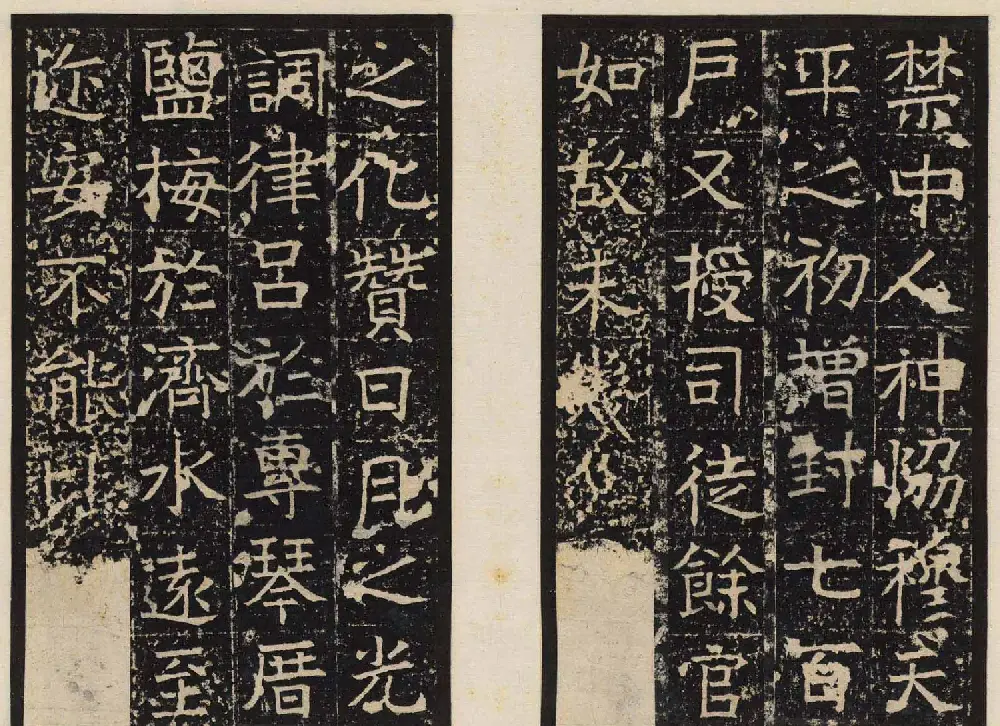 禁中人神恊穆天
平之初增封七百
戶又授司徒餘官
如故未幾
之化贊日月之光
調律呂於專琴厝
鹽梅於濟水遠至
迩安不能